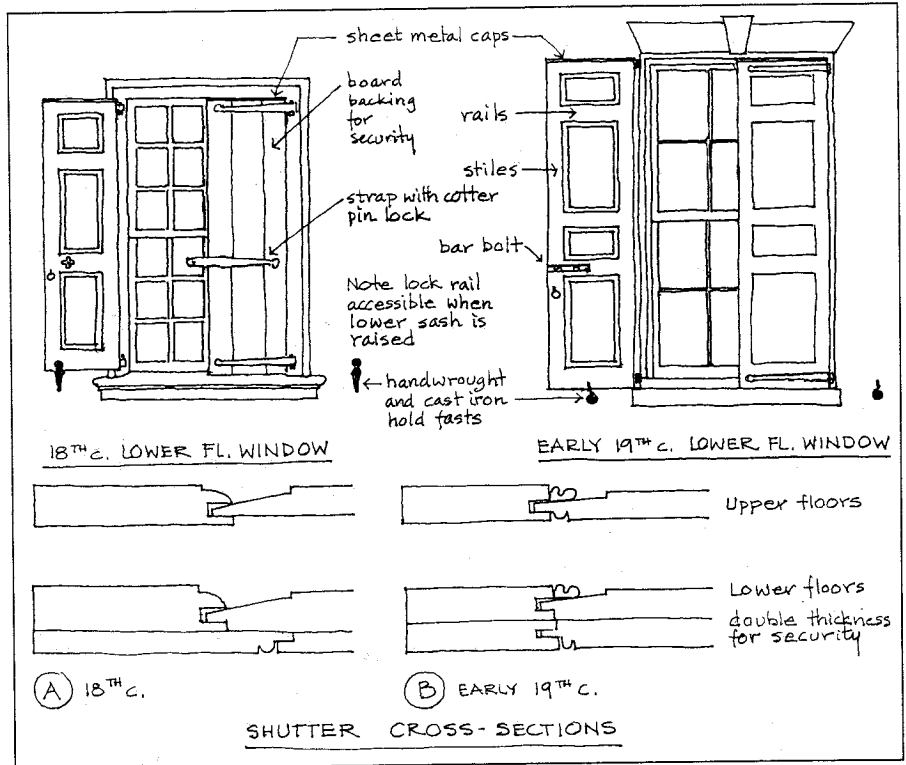 sheet metal caps
board
backing
for
security
rails
stiles
strap with cotter
pin lock
bar bolt
Note lock rail
accessible when
lower sash is
raised
handwrought
and cast iron
hold fasts
18TH C. LOWER FL. WINDOW
EARLY 19TH C. LOWER FL. WINDOW
Upper floors
Lower floors
double thickness
for security
A 18TH C.
B EARLY 19TH C.
SHUTTER CROSS-SECTIONS